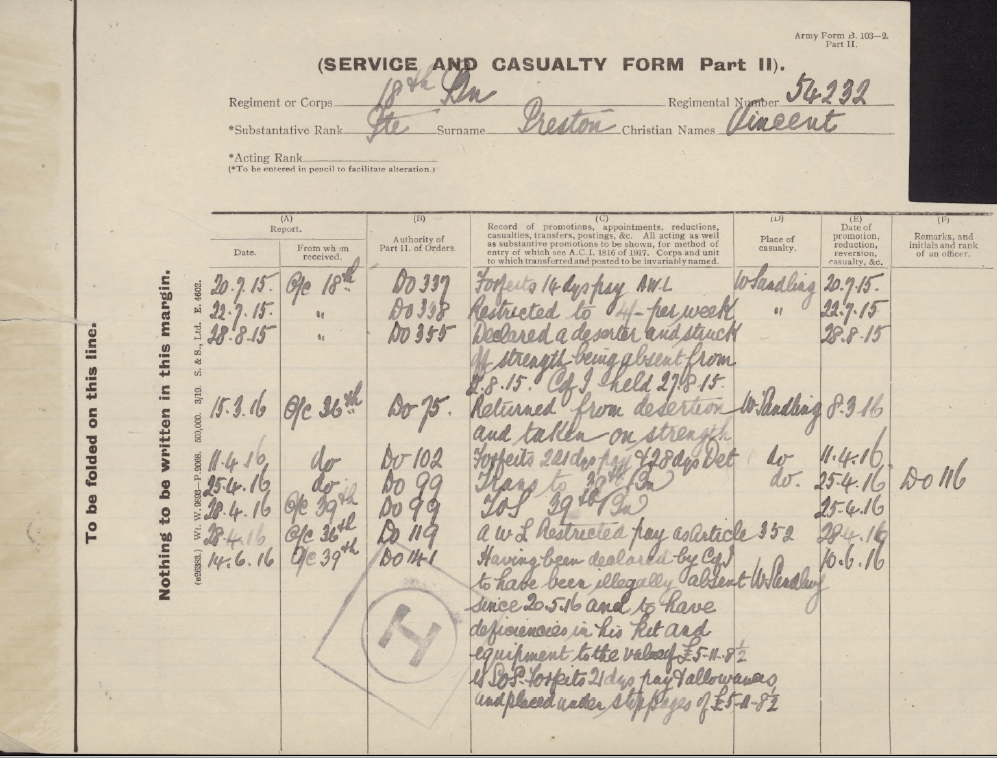 Army Form B. 103—2.
Part II.
(SERVICE AND CASUALTY FORM Part II).
Regiment or Corps 18th Bn Regimental Number 54232
*Substantative Rank Pte Surname Preston Christian Names Vincent
*Acting Rank
(*To be entered in pencil to facilitate alteration.)
(A)
Report.
Date.
From whom
received.
(B)
Authority of
Part II. of Orders.
(C)
Record of promotions, appointments, reductions,
casualties, transfers, postings, &c. All acting as well
as substantive promotions to be shown, for method of
entry of which see A.C.I. 1816 of 1917. Corps and unit
to which transferred and posted to be invariably named.
(D)
Place of
casualty.
(E)
Date of
promotion,
reduction,
reversion,
casualty, &c.
(F)
Remarks, and
initials and rank
of an officer.
20.7.15. O/c 18th DO 337 Forfeits 14 dys pay AWL W Sandling 20.7.15.
22.7.15 " DO 338 Restricted to 4/- per week " 22.7.15
28.8.15 " DO 355 Declared a deserter and struck 28.8.15
off strength being absent from
2.8.15. C of I held 27.8.15.
15.3.16 O/c 36th Do 75. Returned from desertion W. Sandling 8.3.16
and taken on strength
11.4.16 do Do 102 Forfeits 221 dys pay & 28 dys Det do 11.4.16
25.4.16 do Do 99 Trans to 39th Bn do. 25.4.16 DO 116
28.4.16 O/c 39th Do 99 TOS 39th Bn 25.4.16
28.4.16 O/c 36th Do 119 AWL Restricted pay as Article 352 28.4.16
14.6.16 O/c 39th Do 141 Having been declared by C of I 10.6.16
to have been illegally absent W. Sandling
since 20.5.16 and to have
deficiencies in his kit and
equipment to the value of £5-11-8½
is SOS. Forfeits 21 dys pay & allowances
and placed under stoppages of £5-11-8½
H
To be folded on this line.
Nothing to be written in this margin.
500,000. 3/19. S. & S., Ltd. E. 4602.